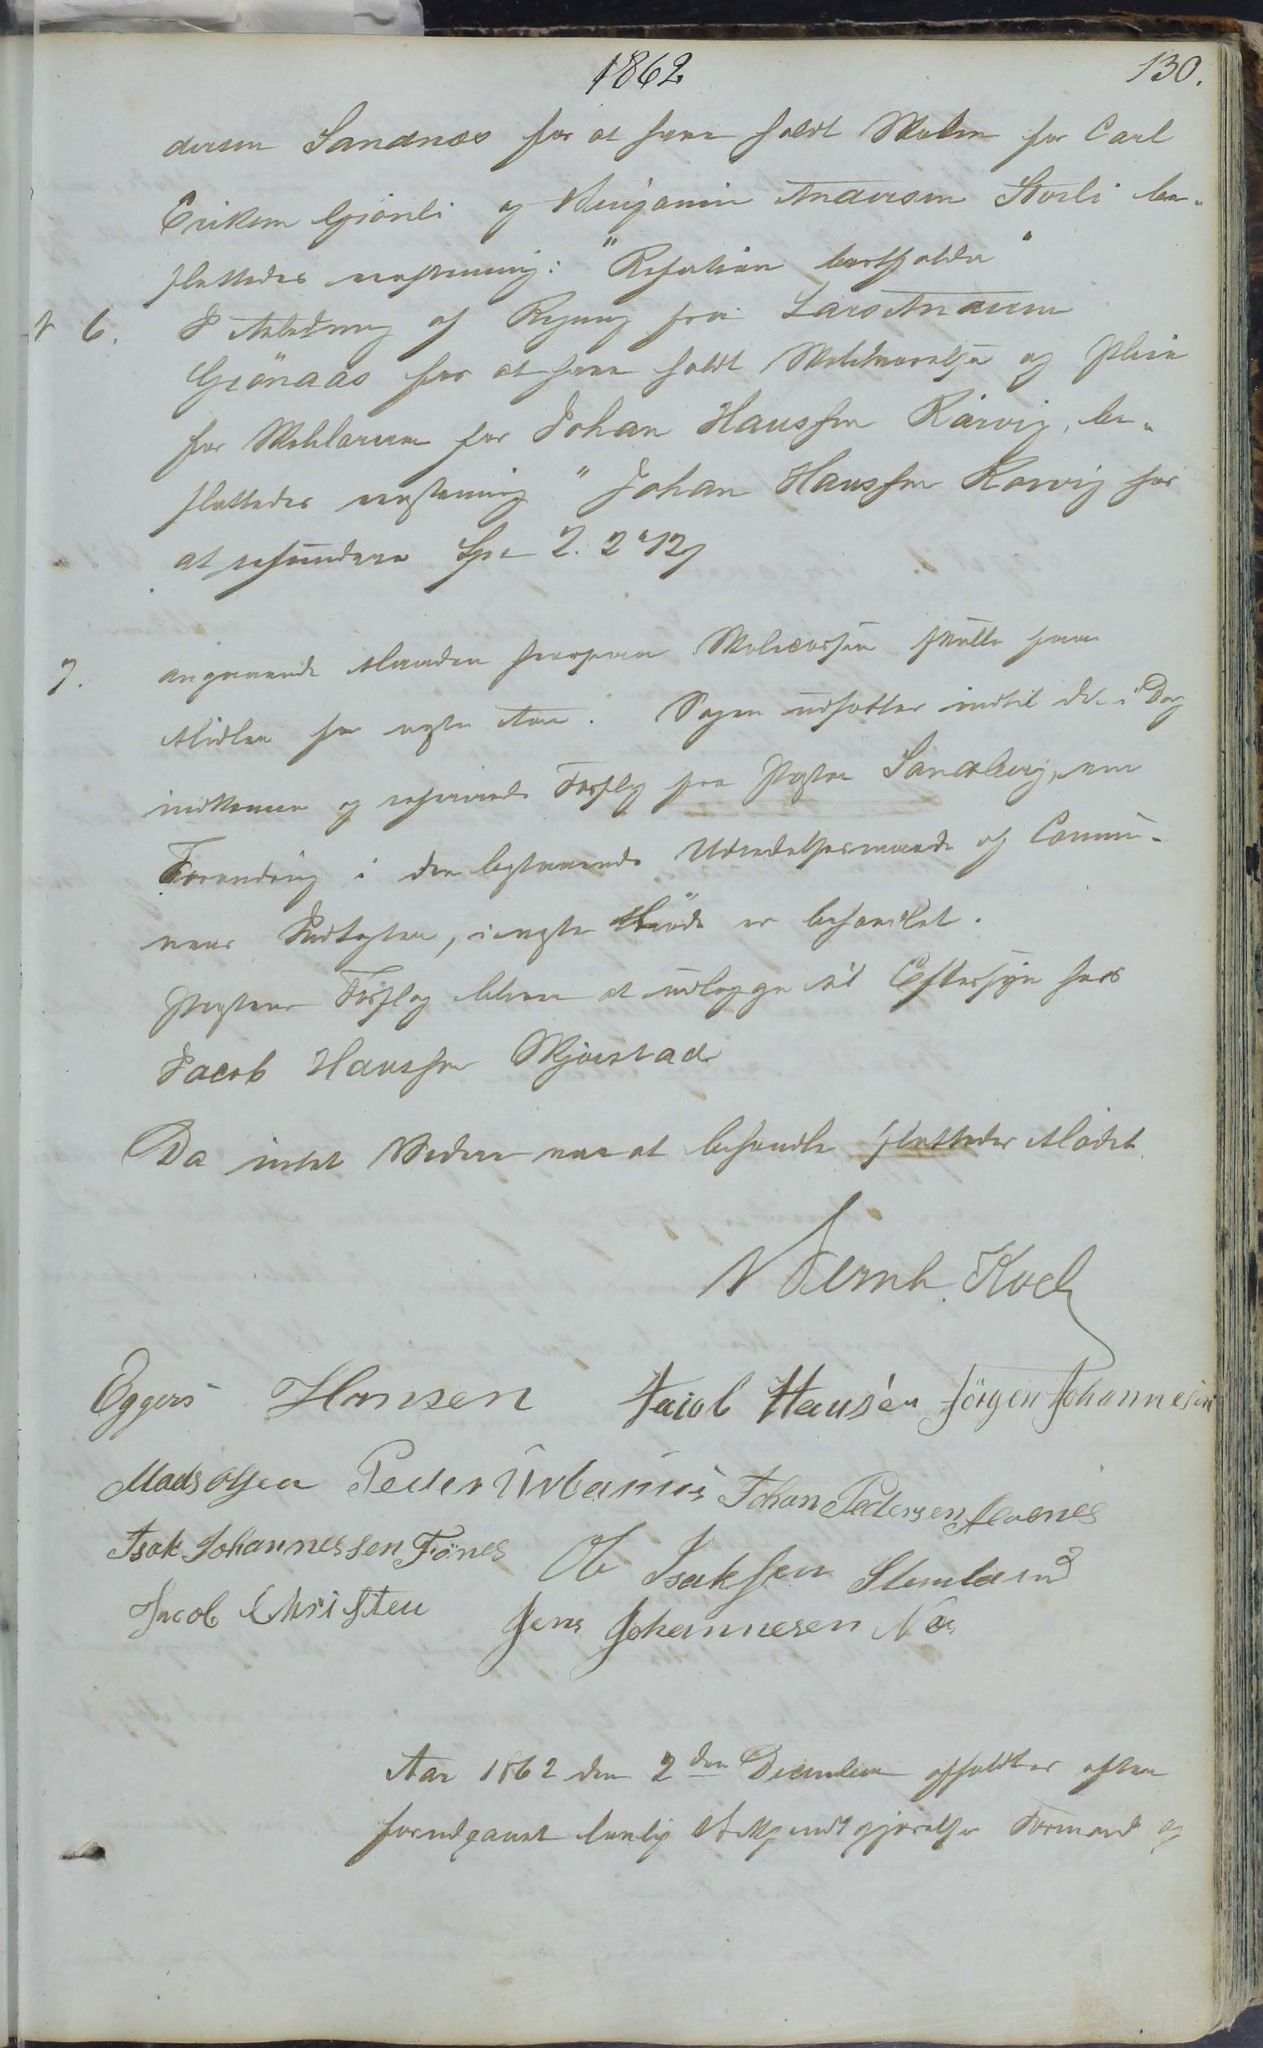 1862
130.
dersen Sandnæs for at have holdt Skolen for Carl
Eriksen Grönli og Benjamin Andersen Storli be-
sluttedes eenstemmig: "Refusion bortfalder"
N 6. I Anledning af Regning fra Lars Andersen
Grönaas for at have holdt Skoleværelse og Pleie
for Skolelæreren for Johan Hanssen Rörvig, be-
sluttedes eenstemmig "Johan Hanssen Rörvig har
at refundere Spd 2. 2 12
7. angaaende Maaden hvorpaa Skolecassen skulde faae
Midler for næste Aar. Sagen udsættes indtil det i Dag
indkomne og refererede Forslag fra Provsten Sandberg, om
Forandring i den bestaaende Udredelsesmaade af Commu-
nens Indtægter, i næste Møde er behandlet.
Provstens Forslag bliver at udlægge til Eftersyn hos
Jacob Hanssen Skjerstad
Da intet Videre var at behandle sluttedes Mödet.
N Bernh. Koch
Eggers Hansen Jacob Hansen Jörgen Johannesen
Mads Olsen Peder Urbanus Johan Pedersen
Isak Johannessen Fönes Ole Isaksen Stemland
Jacob Christen Jens Johannesen Næs
Aar 1862 den 2den December afholdtes efter
forudgaaet lovlig Bekjendtgjørelse Formand og